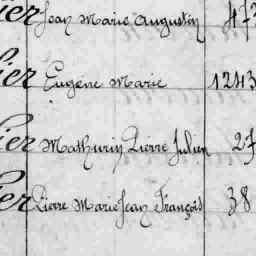 ier Jean Marie Augustin 473
ier Eugène Marie 1243
ier Mathurin Pierre Julien 27
ier Pierre Marie Jean François 38